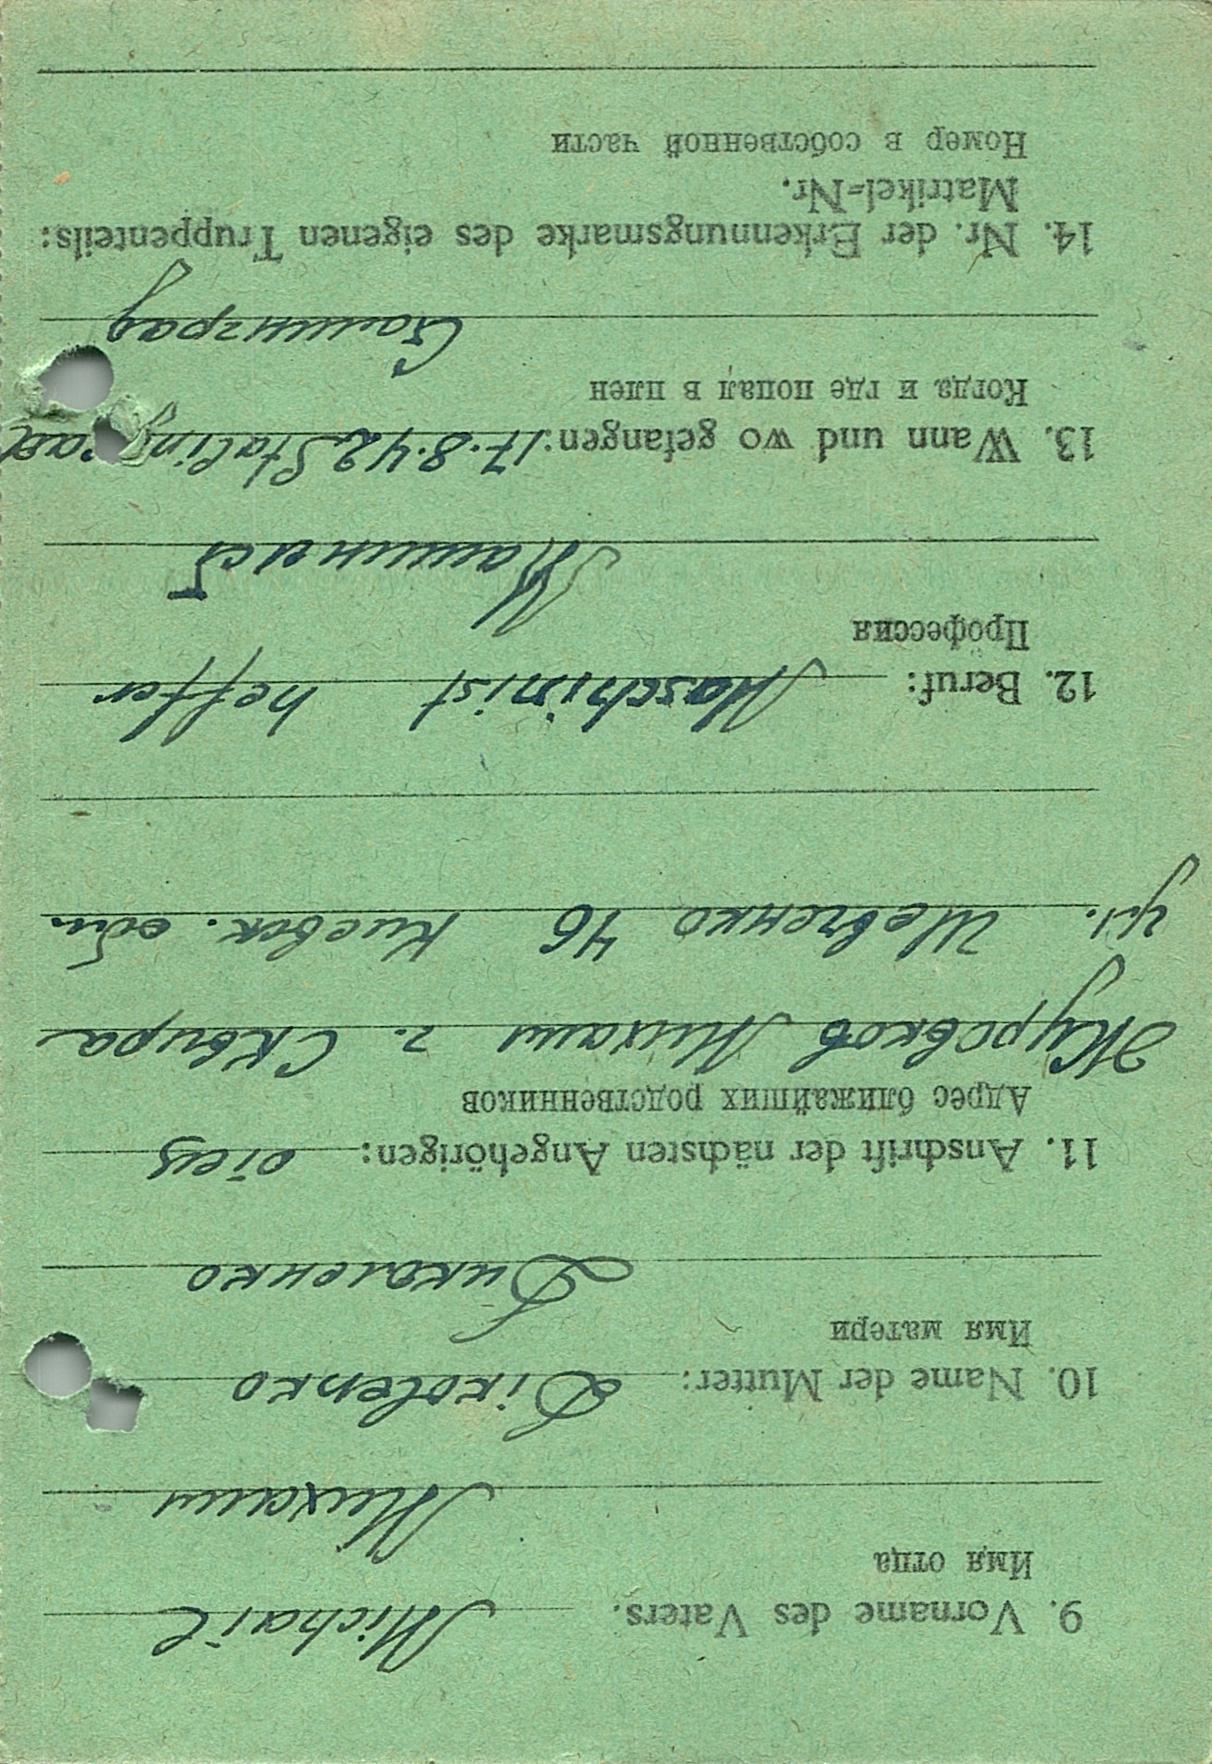 9. Vorname des Vaters. Michail
Имя отца
Михаил
10. Name der Mutter: Dikolenko
Имя матери
Диколенко
11. Anschrift der nächsten Angehörigen: отец
Адрес ближайших родственников
Михаил г. Сквира
ул. Шевченко 46 Киевск. обл.
12. Beruf: Maschinist helfer
Профессия
Машинист
13. Wann und wo gefangen: 17.8.42 Stalingrad
Когда и где попал в плен
Сталинград
14. Nr. der Erkennungsmarke des eigenen Truppenteils:
Matrikel=Nr.
Номер в собственной части